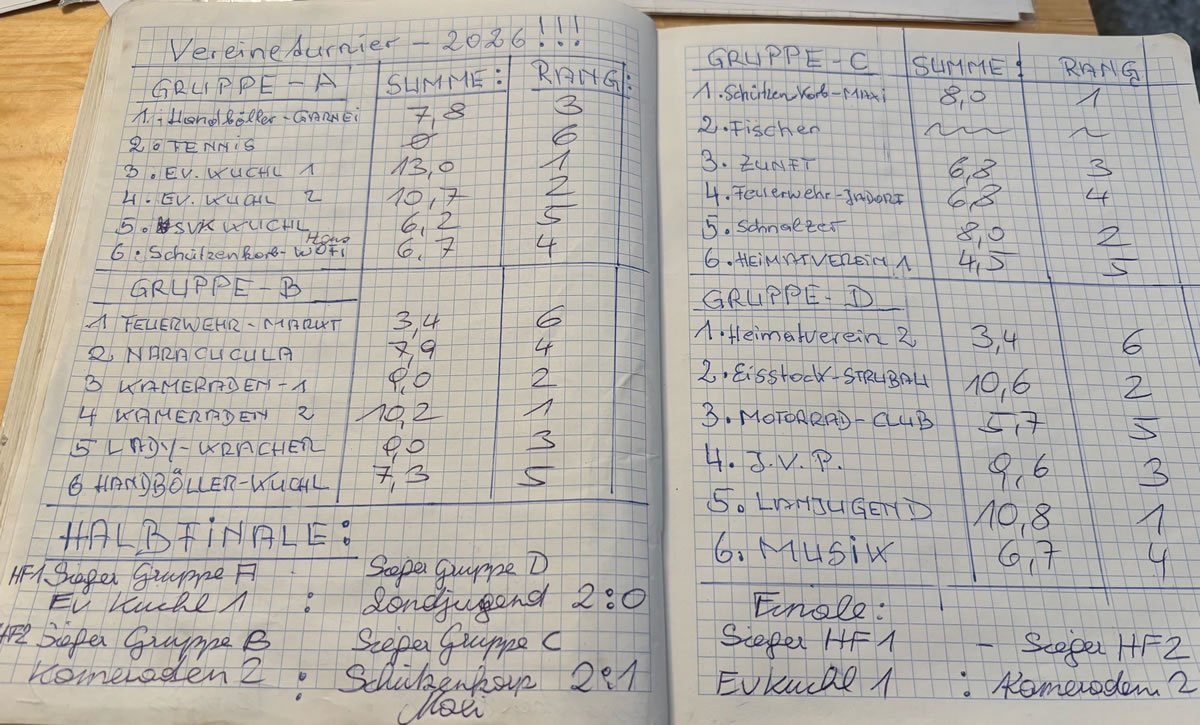 Vereineturnier - 2026!!!
GRUPPE-A SUMME: RANG:
1. Handböller-GARNEI 7,8 3
2. TENNIS 0 6
3. EV. KUCHL 1 13,0 1
4. EV. KUCHL 2 10,7 2
5. SVK KUCHL 6,2 5
6. Schützenkorb- WOFI 6,7 4
GRUPPE-B
1 FEUERWEHR-MARKT 3,4 6
2 NARACUCULA 7,9 4
3 KAMERADEN-1 9,0 2
4 KAMERADEN 2 10,2 1
5 LADY-KRACHER 9,0 3
6 HANDBÖLLER-KUCHL 7,3 5
HALBFINALE:
HF1 Sieger Gruppe A - Sieger Gruppe D
EV Kuchl 1 : Londjugend 2:0
HF2 Sieger Gruppe B Sieger Gruppe C
Kameraden 2 : Schützenkorp 2:1
GRUPPE-C SUMME: RANG
1. Schützenkorb-MAXI 8,0 1
2. Fischer ~~~ ~
3. ZUNFT 6,8 3
4. Feuerwehr-JADORF 6,8 4
5. Schnalzer 8,0 2
6. HEIMATVEREIN 1 4,5 5
GRUPPE-D
1. Heimatverein 2 3,4 6
2. Eisstock-STRUBAU 10,6 2
3. MOTORRAD-CLUB 5,7 5
4. J.V.P. 9,6 3
5. LANJUGEND 10,8 1
6. MUSIK 6,7 4
Finale:
Sieger HF1 - Sieger HF2
EV Kuchl 1 : Kameraden 2